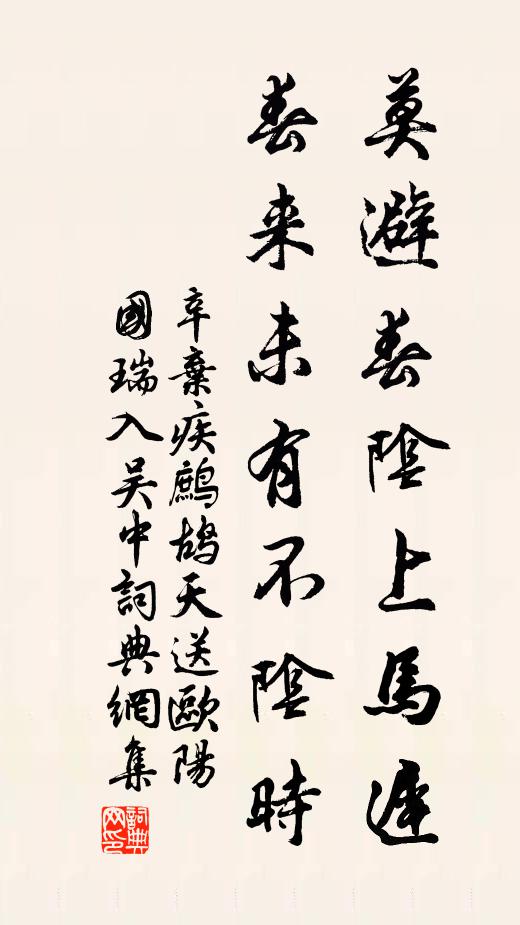 莫避春陰上馬遲
春来未有不陰時
辛棄疾鷓鴣天送歐陽
國瑞入吴中詞典網集
詞典
网印